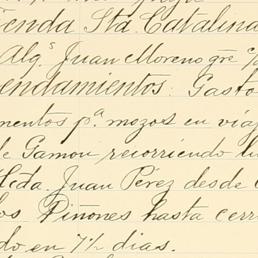 enda Sta Catalina
Alqs Juan Moreno qre c/
endamientos: Gasto
mentos pa mozos en viaj
de Gamon, recorriendo li
Hcda. Juan Pérez desde
los Piñones hasta cerr
do en 7½ dias.